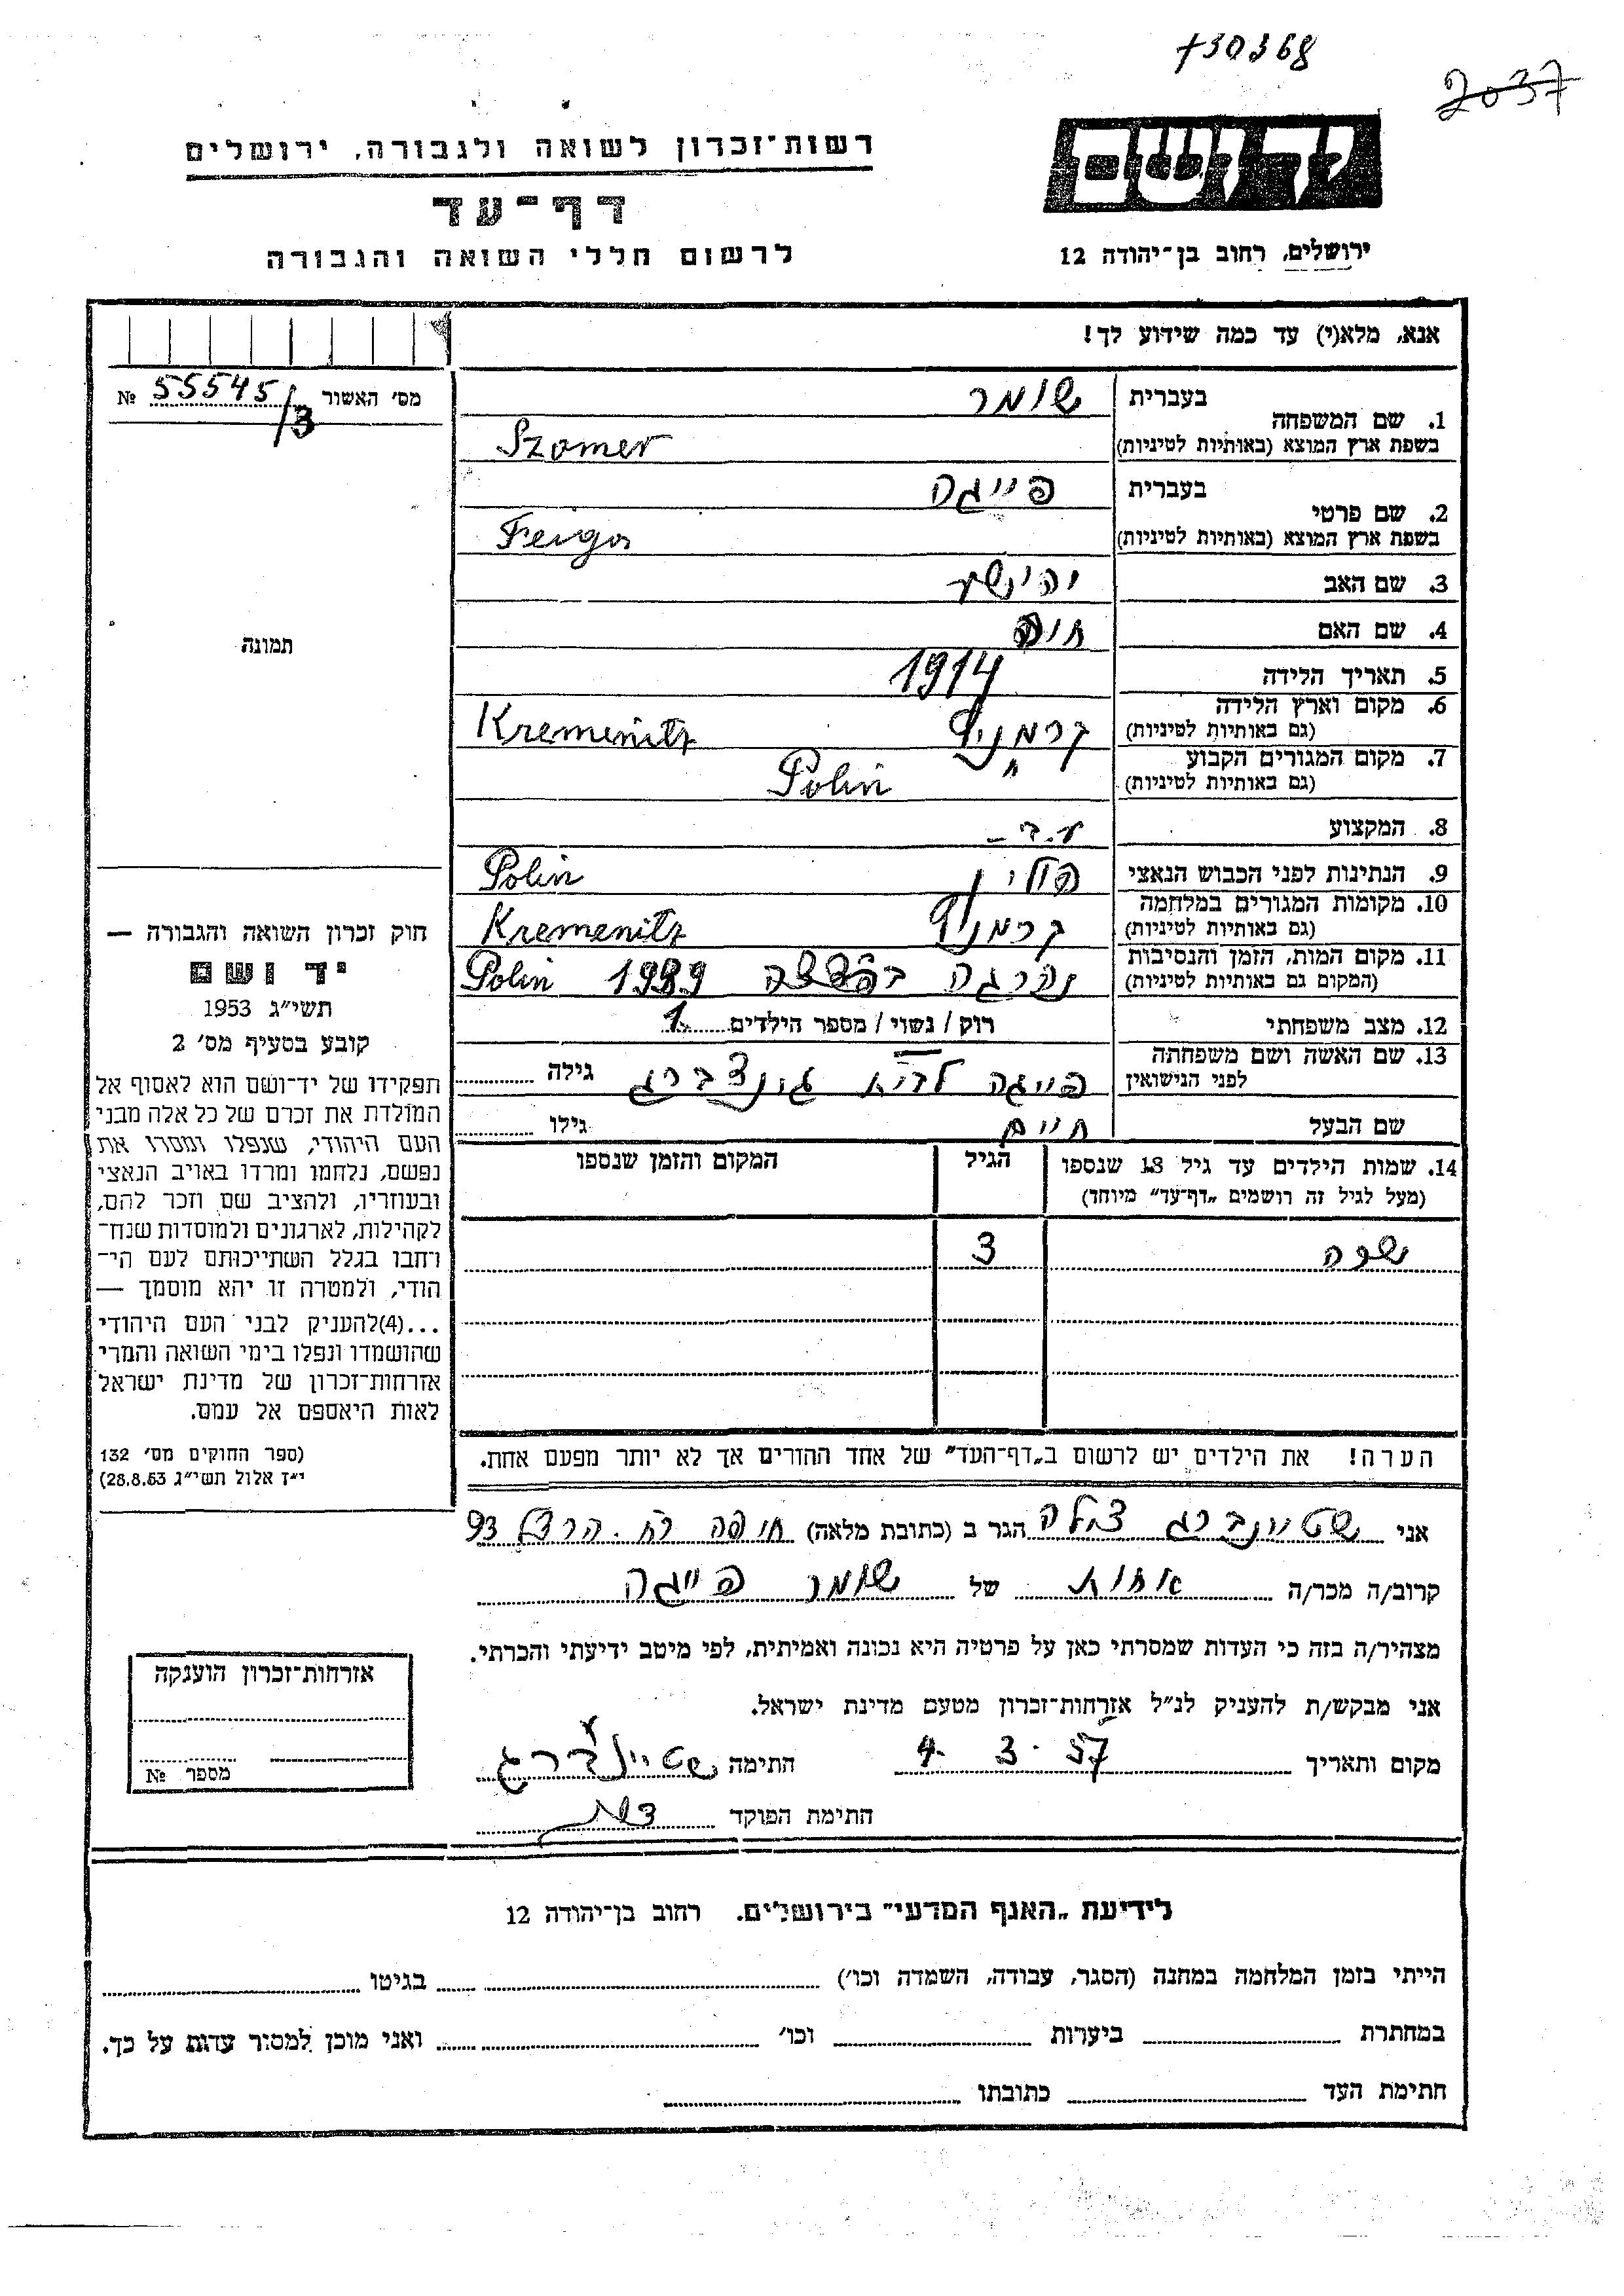 730368
2037
יד ושם
רשות־זכרון לשואה ולגבורה, ירושלים
דף־עד
לרשום חללי השואה והגבורה
ירושלים, רחוב בן־יהודה 12
אנא, מלא(י) עד כמה שידוע לך!
מס׳ האשור 55545/3 №
1. שם המשפחה
בעברית שומר
בשפת ארץ המוצא (באותיות לטיניות) Szomer
2. שם פרטי
בעברית פייגה
בשפת ארץ המוצא (באותיות לטיניות) Feiga
3. שם האב יהושע
4. שם האם חוה
5. תאריך הלידה 1914
6. מקום וארץ הלידה
(גם באותיות לטיניות) קרמניץ Kremenitz
7. מקום המגורים הקבוע
(גם באותיות לטיניות) Polin
8. המקצוע
9. הנתינות לפני הכבוש הנאצי פולין Polin
10. מקומות המגורים במלחמה
(גם באותיות לטיניות) קרמניץ Kremenitz
11. מקום המות, הזמן והנסיבות
(המקום גם באותיות לטיניות) נהרגה 1939 Polin
12. מצב משפחתי רוק / נשוי / מספר הילדים 1
13. שם האשה ושם משפחתה
לפני הנישואין פייגה גינצברג גילה
שם הבעל חיים גילו
14. שמות הילדים עד גיל 18 שנספו
(מעל לגיל זה רושמים „דף־עד״ מיוחד)
הגיל
המקום והזמן שנספו
שרה 3
הערה! את הילדים יש לרשום ב„דף־העד״ של אחד ההורים אך לא יותר מפעם אחת.
תמונה
חוק זכרון השואה והגבורה —
יד ושם
תשי״ג 1953
קובע בסעיף מס׳ 2
תפקידו של יד־ושם הוא לאסוף אל
המולדת את זכרם של כל אלה מבני
העם היהודי, שנפלו ומסרו את
נפשם, נלחמו ומרדו באויב הנאצי
ובעוזריו, ולהציב שם וזכר להם,
לקהילות, לארגונים ולמוסדות שנח־
רחבו בגלל השתייכותם לעם הי־
הודי, ולמטרה זו יהא מוסמך —
...(4)להעניק לבני העם היהודי
שהושמדו ונפלו בימי השואה והמרי
אזרחות־זכרון של מדינת ישראל
לאות היאספם אל עמם.
(ספר החוקים מס׳ 132
י״ז אלול תשי״ג 28.8.53)
אני שטיינברג צילה הגר ב (כתובת מלאה) חיפה רח. הרצל 93
קרוב/ה מכר/ה אחות של שומר פייגה
מצהיר/ה בזה כי העדות שמסרתי כאן על פרטיה היא נכונה ואמיתית, לפי מיטב ידיעתי והכרתי.
אני מבקש/ת להעניק לנ״ל אזרחות־זכרון מטעם מדינת ישראל.
מקום ותאריך 4. 3. 57 חתימה שטיינברג
חתימת הפוקד
אזרחות־זכרון הוענקה
מספר №
לידיעת „האגף המדעי״ בירושלים. רחוב בן־יהודה 12
הייתי בזמן המלחמה במחנה (הסגר, עבודה, השמדה וכו׳) בגיטו
במחתרת ביערות וכו׳ ואני מוכן למסור עדות על כך.
חתימת העד כתובתו